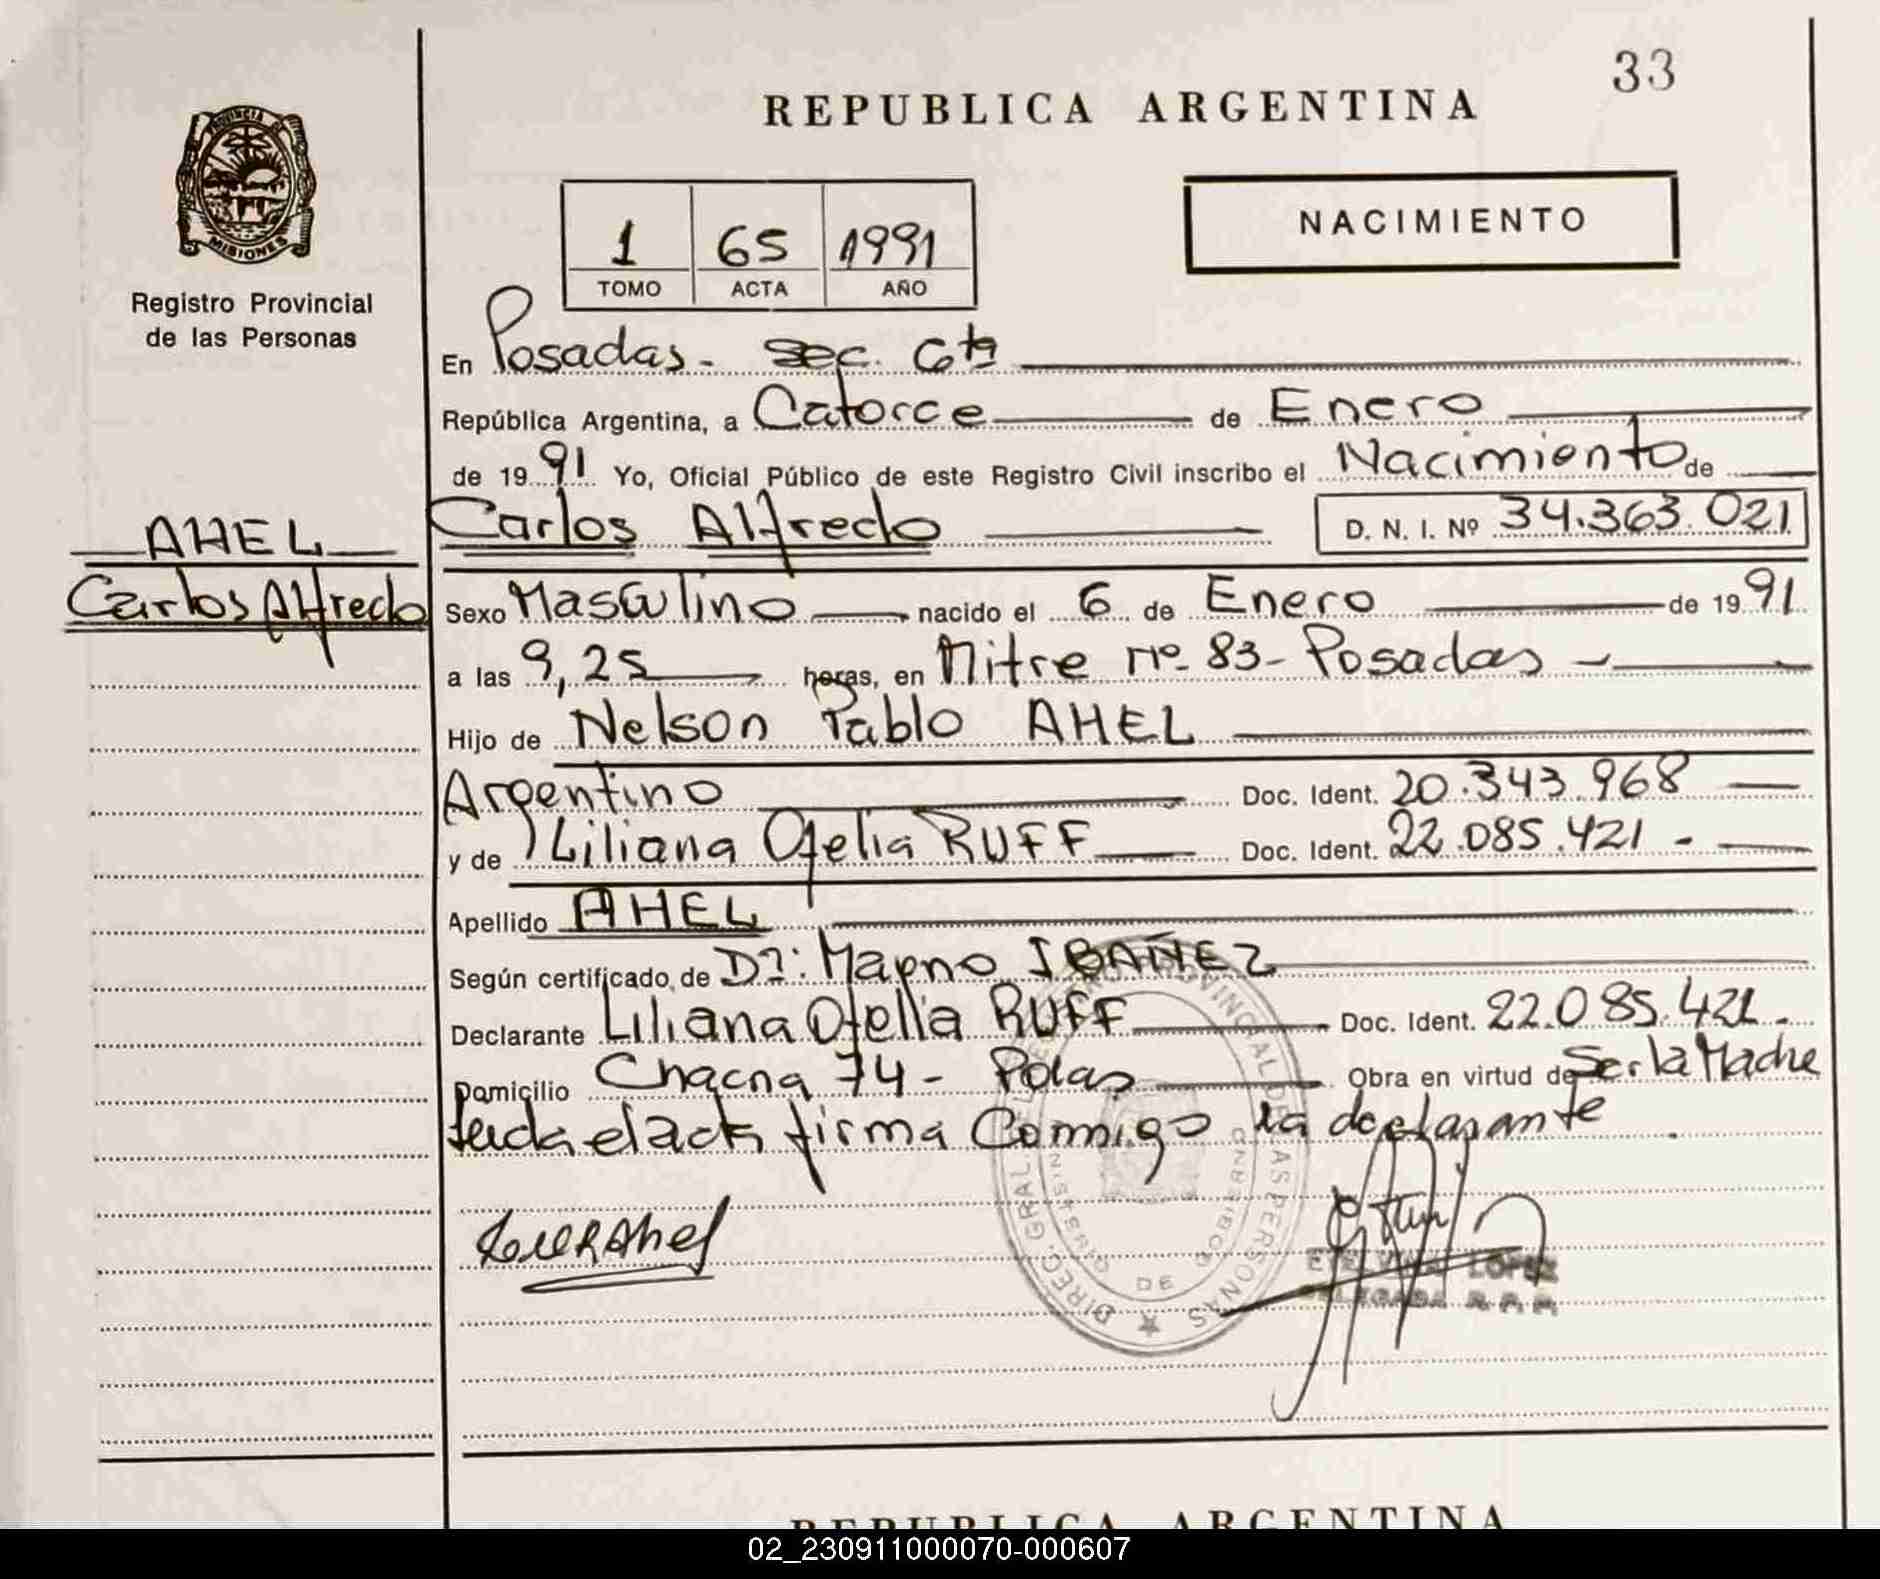 33
REPUBLICA ARGENTINA
PROVINCIA DE
MISIONES
Registro Provincial
de las Personas
NACIMIENTO
1 65 1991
TOMO ACTA AÑO
En Posadas - sec. 6ta
República Argentina, a Catorce de Enero
de 1991 Yo, Oficial Público de este Registro Civil inscribo el Nacimiento de
AHEL
Carlos Alfredo
Carlos Alfredo D. N. I. Nº 34.363.021
Sexo Masculino nacido el 6 de Enero de 1991
a las 9,25 horas, en Mitre nº 83 - Posadas -
Hijo de Nelson Pablo AHEL
Argentino Doc. Ident. 20.343.968
y de Liliana Ofelia RUFF Doc. Ident. 22.085.421 -
Apellido AHEL
Según certificado de Dr: Magno IBAÑEZ
Declarante Liliana Ofelia RUFF Doc. Ident. 22.085.421 -
Domicilio Chacra 74 - Pdas Obra en virtud de Ser la Madre
leida el acta firma Conmigo la declarante
DIREC. GRAL. REGISTRO PROVINCIAL DE LAS PERSONAS
DE
LOPEZ
DELEGADA R. P. P.
REPUBLICA ARGENTINA
02_230911000070-000607